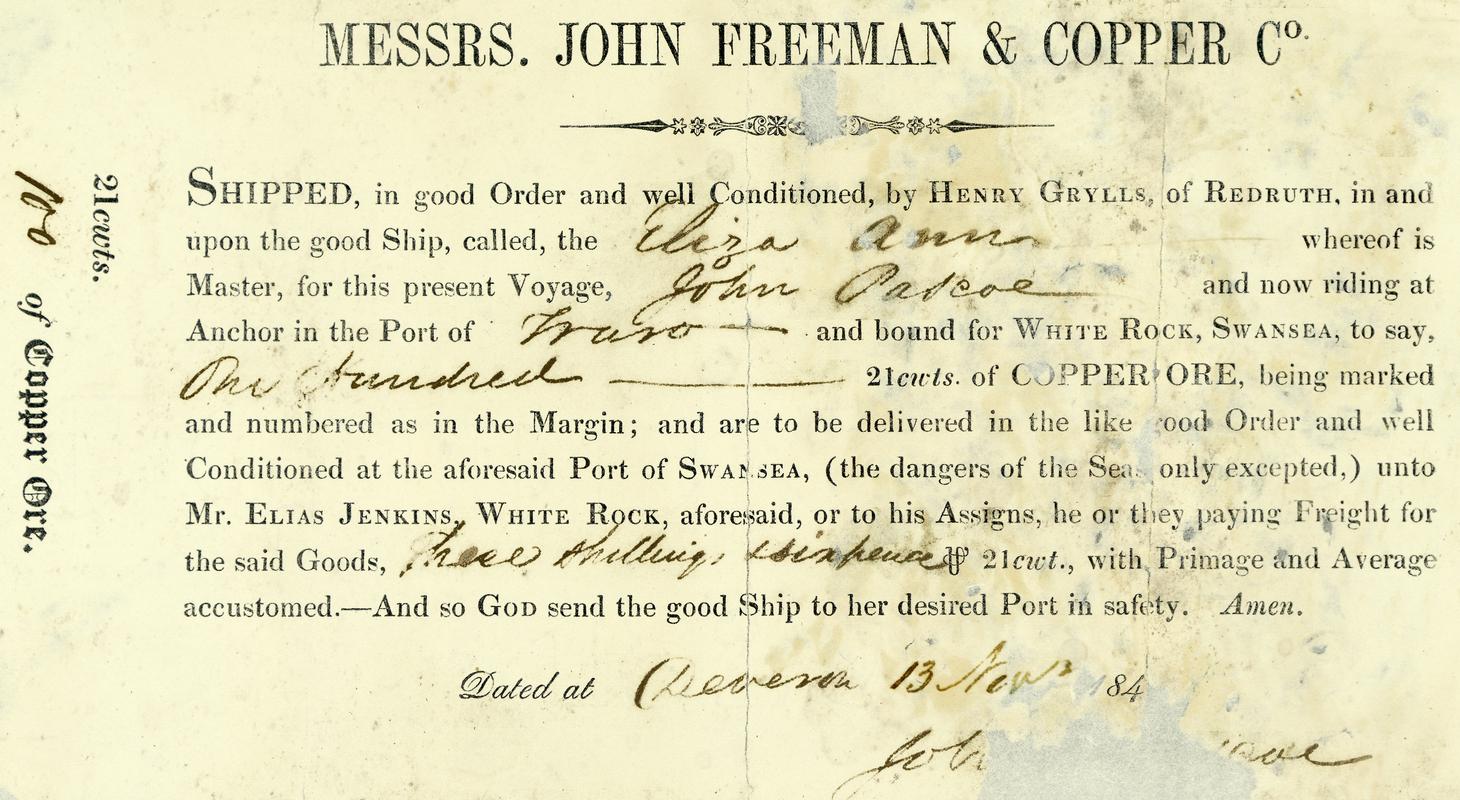 MESSRS. JOHN FREEMAN & COPPER Co.
SHIPPED, in good Order and well Conditioned, by HENRY GRYLLS, of REDRUTH, in and
upon the good Ship, called, the Eliza Ann whereof is
Master, for this present Voyage, John Pascoe and now riding at
Anchor in the Port of Truro and bound for WHITE ROCK, SWANSEA, to say,
One Hundred 21cwts. of COPPER ORE, being marked
and numbered as in the Margin; and are to be delivered in the like ood Order and well
Conditioned at the aforesaid Port of SWANSEA, (the dangers of the Sea only excepted,) unto
Mr. ELIAS JENKINS, WHITE ROCK, aforesaid, or to his Assigns, he or they paying Freight for
the said Goods, Three Shillings & Sixpence ⅌ 21cwt., with Primage and Average
accustomed.—And so GOD send the good Ship to her desired Port in safety. Amen.
Dated at 13 Novr 84
Joh coe
100 21cwts. of Copper Ore.